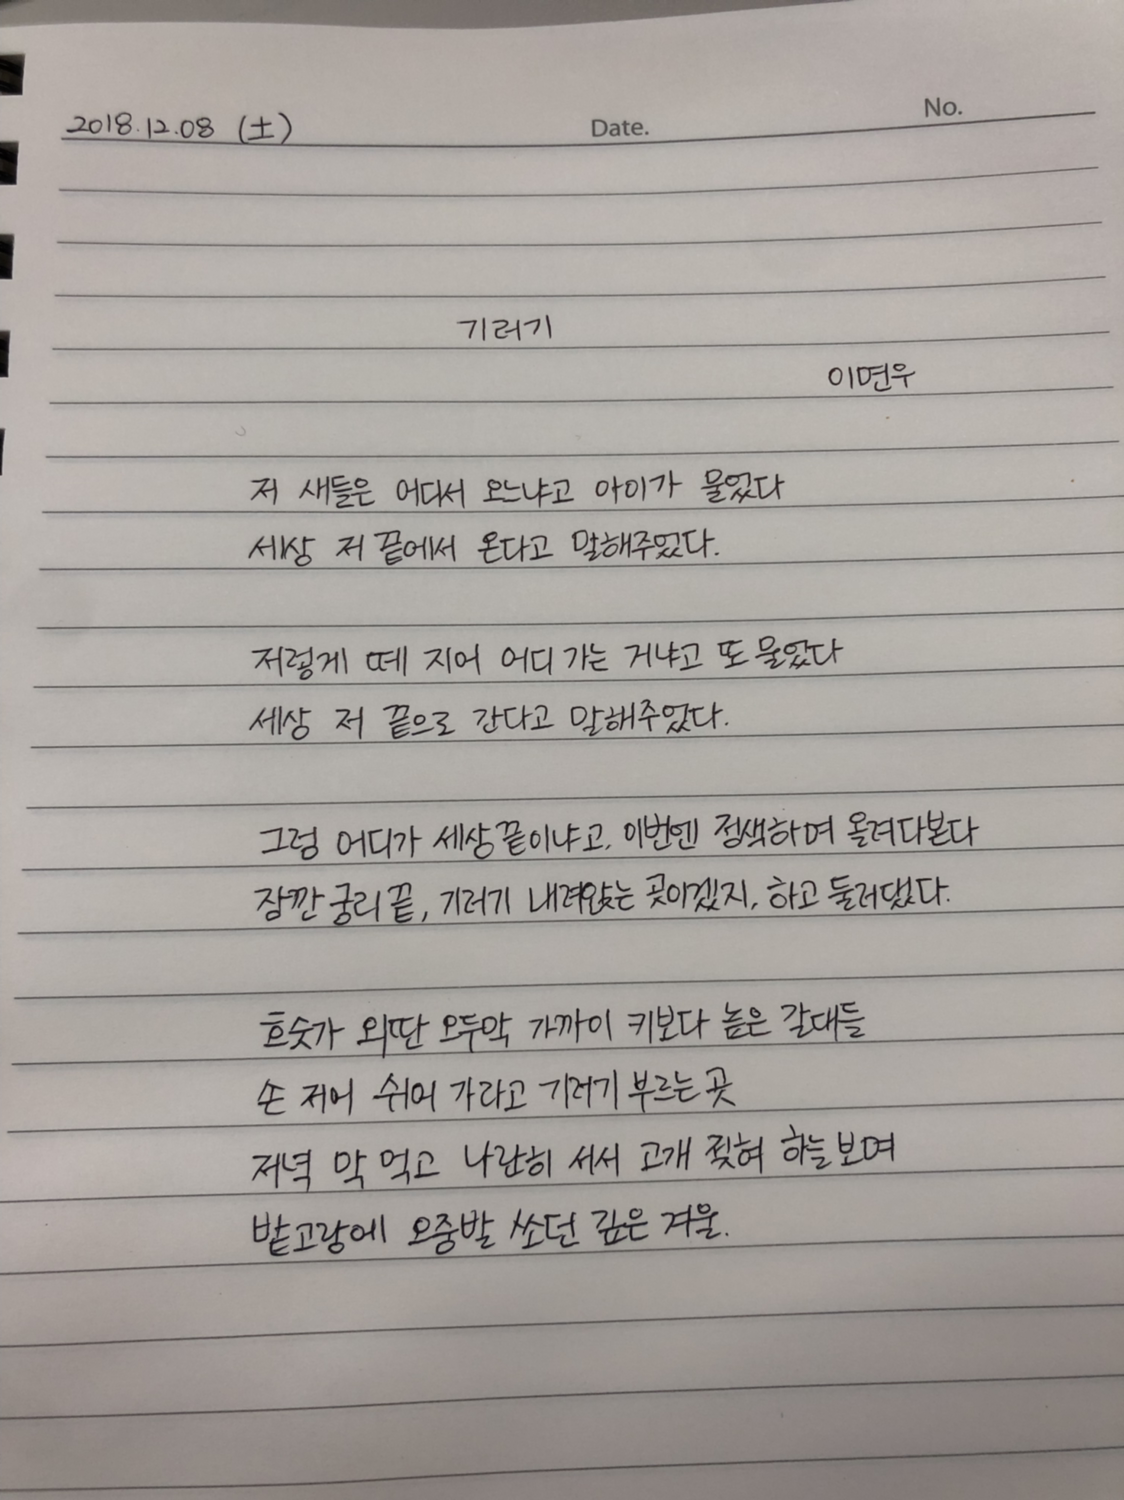 2018.12.08 (土)
Date.
No.
기러기
이면우
저 새들은 어디서 오느냐고 아이가 물었다
세상 저 끝에서 온다고 말해주었다.
저렇게 떼 지어 어디 가는 거냐고 또 물었다
세상 저 끝으로 간다고 말해주었다.
그럼 어디가 세상 끝이냐고, 이번엔 정색하며 올려다본다
잠깐 궁리 끝, 기러기 내려앉는 곳이겠지, 하고 둘러댔다.
호숫가 외딴 오두막 가까이 키보다 높은 갈대들
손 저어 쉬어 가라고 기러기 부르는 곳
저녁 막 먹고 나란히 서서 고개 젖혀 하늘 보며
밭고랑에 오줌발 쏘던 깊은 겨울.